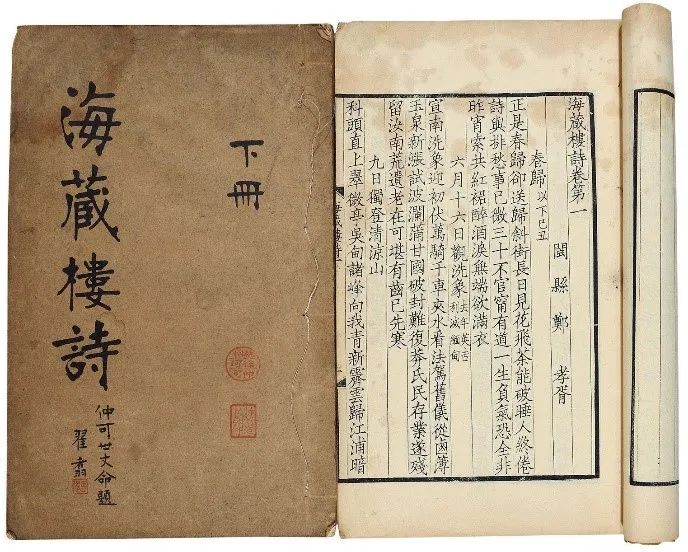 海藏樓詩卷第一
閩縣鄭孝胥
春歸以下己丑
正是春歸卻送歸斜街長日見花飛茶能破睡人終倦
詩與排愁事已微三十不官甯有道一生負氣恐全非
昨宵索共紅裙醉酒淚無端欲滿衣
六月十六日觀洗象去年英吉利滅緬甸
宣南洗象迎初伏萬騎千車夾水看法駕舊儀從鹵簿
玉泉新漲試波瀾蒲甘國破封難復莽氏民存業遂殘
留汝南荒遺老在可堪有齒已先寒
九日獨登清涼山
科頭直上翠微亭吳甸諸峰向我青新霽雲歸江浦暗
下冊
海藏樓詩
仲可世丈命題